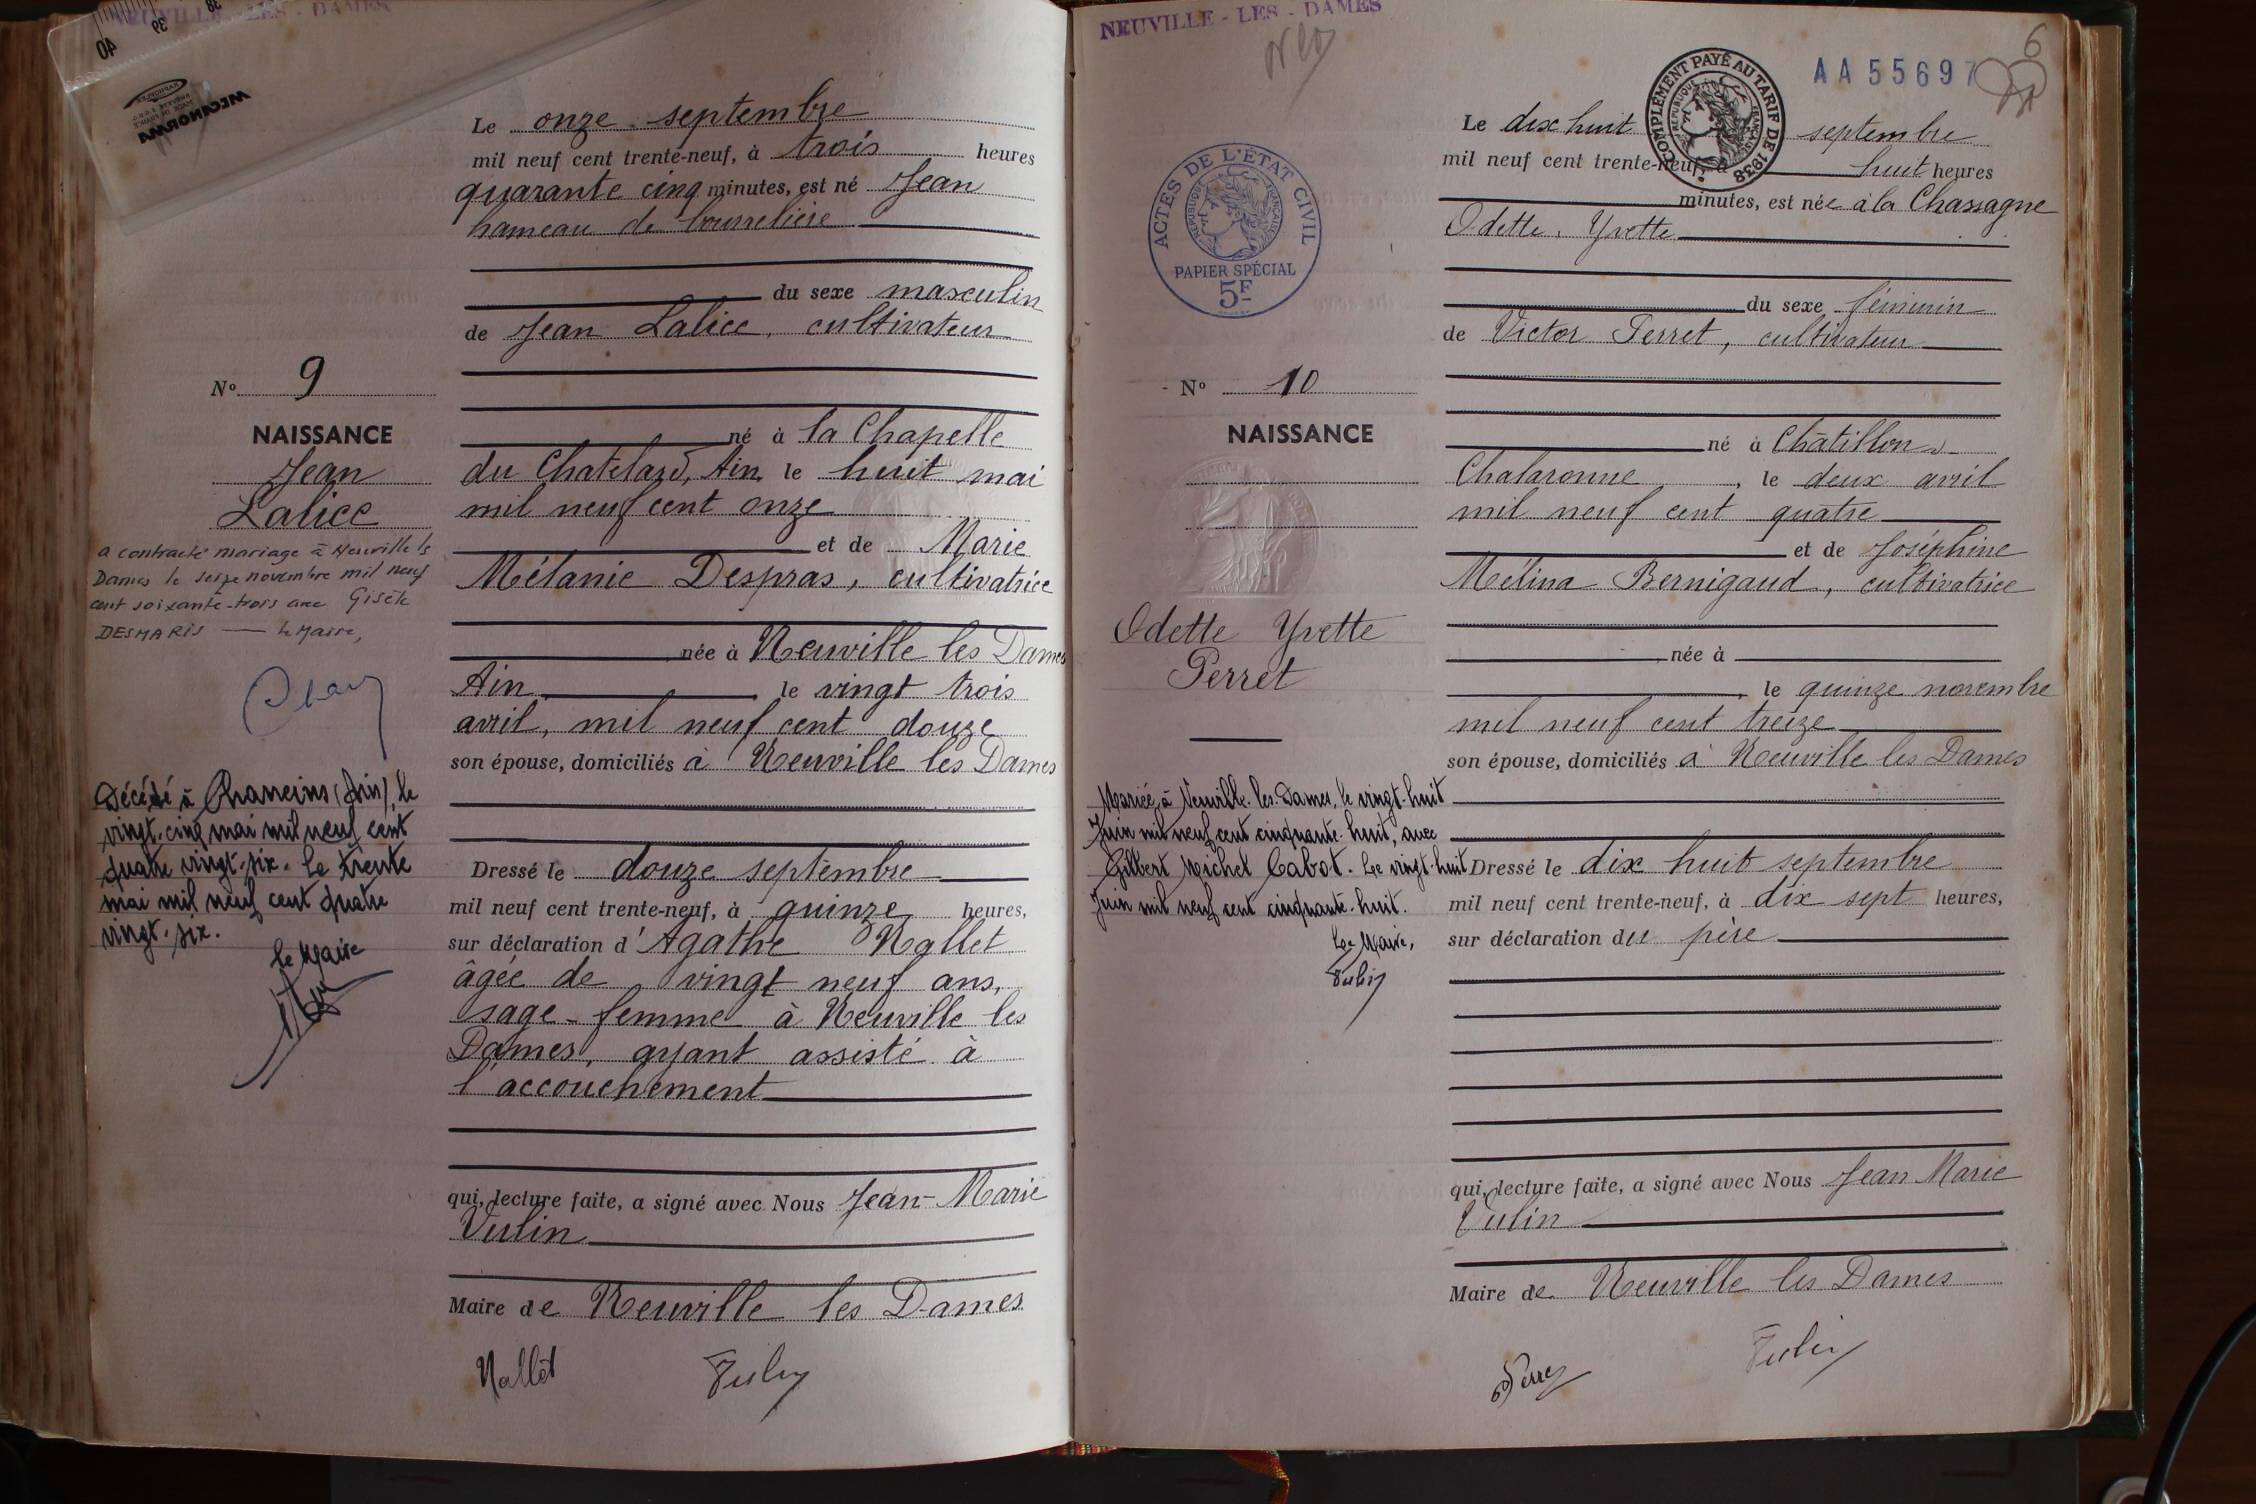 NEUVILLE - LES - DAMES
40
39
38
MECANORMA
Le onze septembre
mil neuf cent trente-neuf, à trois heures
quarante cinq minutes, est né Jean
hameau de
du sexe masculin
de Jean Lalice, cultivateur
né à la Chapelle
du Chatelard, Ain, le huit mai
mil neuf cent onze
et de Marie
Mélanie Despras, cultivatrice
née à Neuville les Dames
Ain le vingt trois
avril, mil neuf cent douze
son épouse, domiciliés à Neuville les Dames
Dressé le douze septembre
mil neuf cent trente-neuf, à quinze heures,
sur déclaration d'Agathe Nallet
âgée de vingt neuf ans,
sage-femme à Neuville les
Dames, ayant assisté à
l'accouchement
qui, lecture faite, a signé avec Nous Jean-Marie
Vulin
Maire de Neuville les Dames
Nallet
Vulin
N° 9
NAISSANCE
Jean
Lalice
a contracté mariage à Neuville ls
Dames le seize novembre mil neuf
cent soixante-trois avec Gisèle
DESMARIS — le Maire,
Décédé à Chaneins (Ain), le
vingt-cinq mai mil neuf cent
quatre vingt-six. Le trente
mai mil neuf cent quatre
vingt-six.
le Maire
NEUVILLE - LES - DAMES
6
AA55697
COMPLÉMENT PAYÉ AU TARIF DE 1938
RÉPUBLIQUE FRANÇAISE
ACTES DE L'ÉTAT CIVIL
RÉPUBLIQUE FRANÇAISE
PAPIER SPÉCIAL
5F
Le dix huit septembre
mil neuf cent trente-neuf, à huit heures
minutes, est née à la Chassagne
Odette, Yvette
du sexe féminin
de Victor Perret, cultivateur
né à Châtillon s.
Chalaronne, le deux avril
mil neuf cent quatre
et de Joséphine
Mélina Bernigaud, cultivatrice
née à
, le quinze novembre
mil neuf cent treize
son épouse, domiciliés à Neuville les Dames
Dressé le dix huit septembre
mil neuf cent trente-neuf, à dix sept heures,
sur déclaration du père
qui, lecture faite, a signé avec Nous Jean Marie
Vulin
Maire de Neuville les Dames
Perret
Vulin
N° 10
NAISSANCE
Odette Yvette
Perret
Mariée à Neuville-les-Dames, le vingt-huit
Juin mil neuf cent cinquante-huit, avec
Gilbert Michel Cabot. Le vingt-huit
Juin mil neuf cent cinquante-huit.
Le Maire,
Vulin